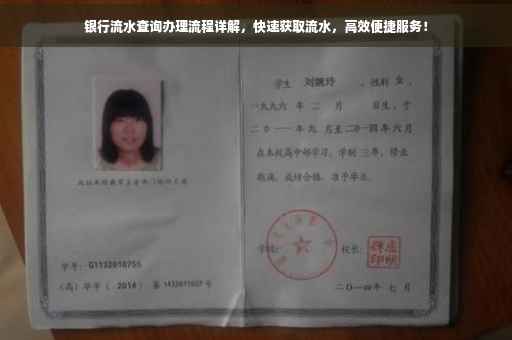 银行流水查询办理流程详解，快速获取流水，高效便捷服务！
学号：G1132010755
(高) 毕字 ( 2014 ) 第 1432011007 号
学生 刘婉玲 ，性别 女 ，
一九九六 年 二 月 日生，于
二〇一一 年 九 月至 二〇一四 年 六 月
在本校高中部学习，学制 三 年，修业
期满，成绩合格，准予毕业。
校长：
二〇一四年 七 月